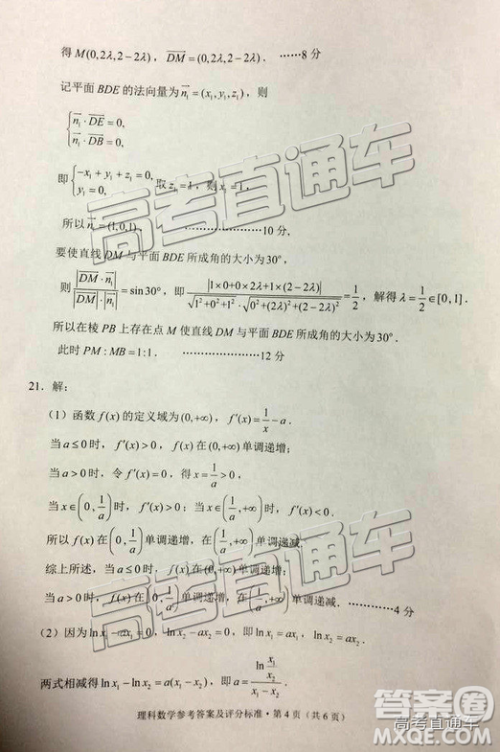 得 M(0,2λ,2−2λ)，DM⃗=(0,2λ,2−2λ)． ……8 分
记平面 BDE 的法向量为 n₁⃗=(x₁,y₁,z₁)，则
{ n₁⃗·DE⃗=0,
n₁⃗·DB⃗=0,
即 { −x₁+y₁+z₁=0,
y₁=0, 取 z₁=1，则 x₁=1，
所以 n₁⃗=(1,0,1)． ……10 分
要使直线 DM 与平面 BDE 所成角的大小为 30°，
则 |DM⃗·n₁⃗|/(|DM⃗|·|n₁⃗|)=sin30°，即 |1×0+0×2λ+1×(2−2λ)|/(√(1²+0²+1²)·√(0²+(2λ)²+(2−2λ)²))=1/2，解得 λ=1/2∈[0,1]．
所以在棱 PB 上存在点 M 使直线 DM 与平面 BDE 所成角的大小为 30°．
此时 PM:MB=1:1． ……12 分
21．解：
（1）函数 f(x) 的定义域为 (0,+∞)，f′(x)=1/x−a．
当 a≤0 时，f′(x)>0，f(x) 在 (0,+∞) 单调递增；
当 a>0 时，令 f′(x)=0．得 x=1/a>0，
当 x∈(0,1/a) 时，f′(x)>0；当 x∈(1/a,+∞) 时，f′(x)<0，
所以 f(x) 在 (0,1/a) 单调递增，在 (1/a,+∞) 单调递减．
综上所述，当 a≤0 时，f(x) 在 (0,+∞) 单调递增；
当 a>0 时，f(x) 在 (0,1/a) 单调递增，在 (1/a,+∞) 单调递减． ……4 分
（2）因为 lnx₁−ax₁=0，lnx₂−ax₂=0，即 lnx₁=ax₁，lnx₂=ax₂．
两式相减得 lnx₁−lnx₂=a(x₁−x₂)，即 a=ln(x₁/x₂)/(x₁−x₂)．
理科数学参考答案及评分标准·第 4 页（共 6 页）
高考直通车
高考直通车
高考直通车